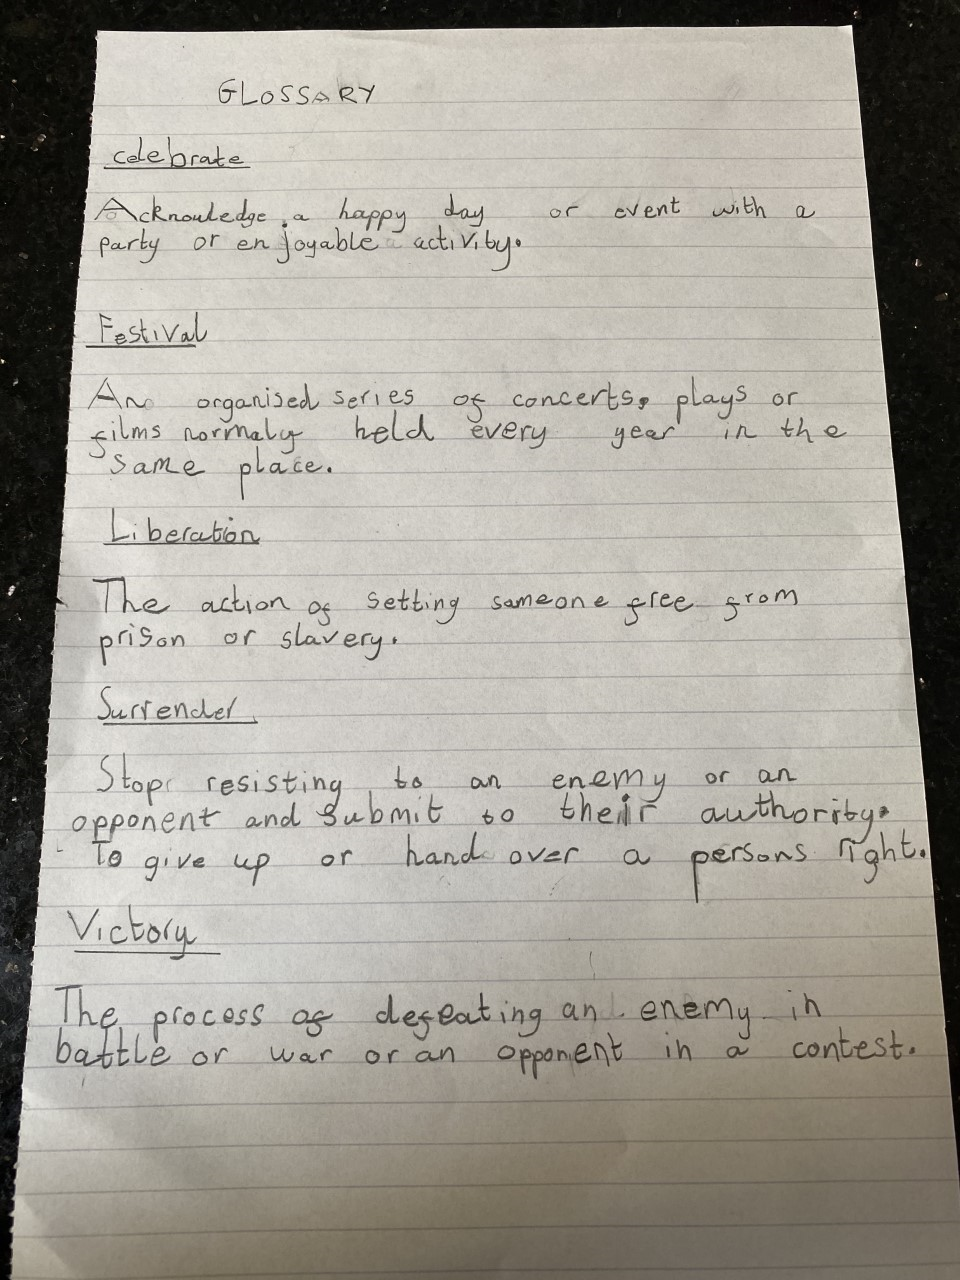 GLOSSARY
celebrate
Acknowledge a happy day or event with a
party or enjoyable activity.
Festival
An organised series of concerts, plays or
films normaly held every year in the
same place.
Liberation
The action of setting someone free from
prison or slavery.
Surrender
Stop resisting to an enemy or an
opponent and submit to their authority.
To give up or hand over a persons right.
Victory
The process of defeating an enemy in
battle or war or an opponent in a contest.